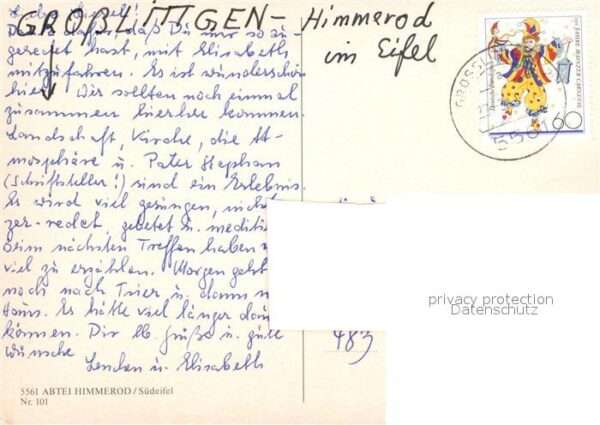 GROßLITTGEN - Himmerod
im Eifel
Dank dafür, daß Du mir so zu-
geredet hast, mit Elisabeth
mitzufahren. Es ist wunderschön
hier! Wir sollten noch einmal
zusammen hierher kommen.
Landschaft, Kirche, die At-
mosphäre u. Pater Stephan
(Schriftsteller!) sind ein Erlebnis.
Es wird viel gesungen, nicht
zer-redet, gebetet u. meditie
Beim nächsten Treffen haben w
viel zu erzählen. Morgen geht
noch nach Trier u. dann n
Haus. Es hätte viel länger dau
können. Dir lb. Grüße u. gute
Wünsche
Lenchen u. Elisabeth
5561 ABTEI HIMMEROD / Südeifel
Nr. 101
GROSSLI
5561
150 JAHRE MAINZER CARNEVAL
Deutsche Bundespost
60
483
privacy protection
Datenschutz